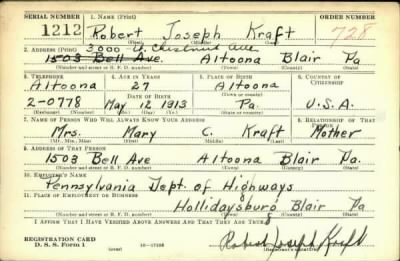 SERIAL NUMBER 1. NAME (Print) ORDER NUMBER
1212 Robert Joseph Kraft 728
(First) (Middle) (Last)
2. ADDRESS (Print) 3000 W. Chestnut Ave
1503 Bell Ave. Altoona Blair Pa
(Number and street or R. F. D. number) (Town) (County) (State)
3. TELEPHONE 4. AGE IN YEARS 5. PLACE OF BIRTH 6. COUNTRY OF CITIZENSHIP
Altoona 27 Altoona
(Exchange) DATE OF BIRTH (Town or county)
2-0778 May 12 1913 Pa. U.S.A.
(Number) (Mo.) (Day) (Yr.) (State or country)
7. NAME OF PERSON WHO WILL ALWAYS KNOW YOUR ADDRESS 8. RELATIONSHIP OF THAT PERSON
Mrs. Mary C. Kraft Mother
(Mr., Mrs., Miss) (First) (Middle) (Last)
9. ADDRESS OF THAT PERSON
1503 Bell Ave Altoona Blair Pa.
(Number and street or R. F. D. number) (Town) (County) (State)
10. EMPLOYER'S NAME
Pennsylvania Dept. of Highways
11. PLACE OF EMPLOYMENT OR BUSINESS
Hollidaysburg Blair Pa
(Number and street or R. F. D. number) (Town) (County) (State)
I AFFIRM THAT I HAVE VERIFIED ABOVE ANSWERS AND THAT THEY ARE TRUE.
REGISTRATION CARD
D. S. S. Form 1 Robert Joseph Kraft
(Registrant's signature)